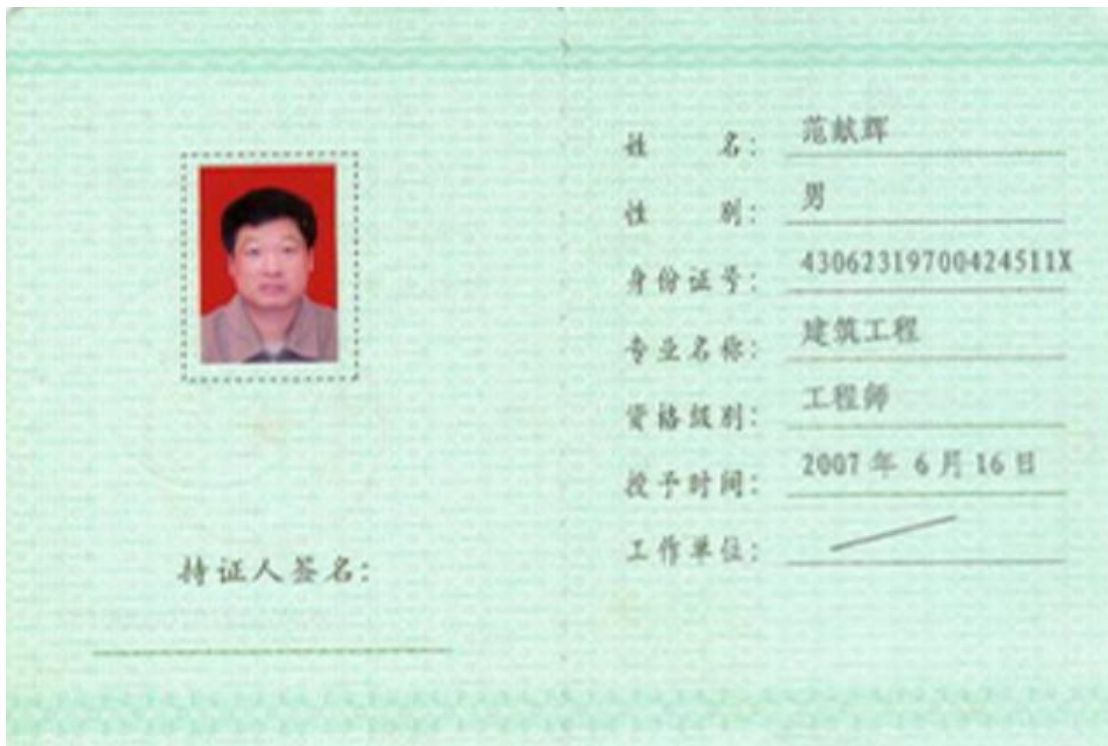 持证人签名:
姓 名: 范献辉
性 别: 男
身份证号: 43062319700424511X
专业名称: 建筑工程
资格级别: 工程师
授予时间: 2007 年 6 月 16 日
工作单位: